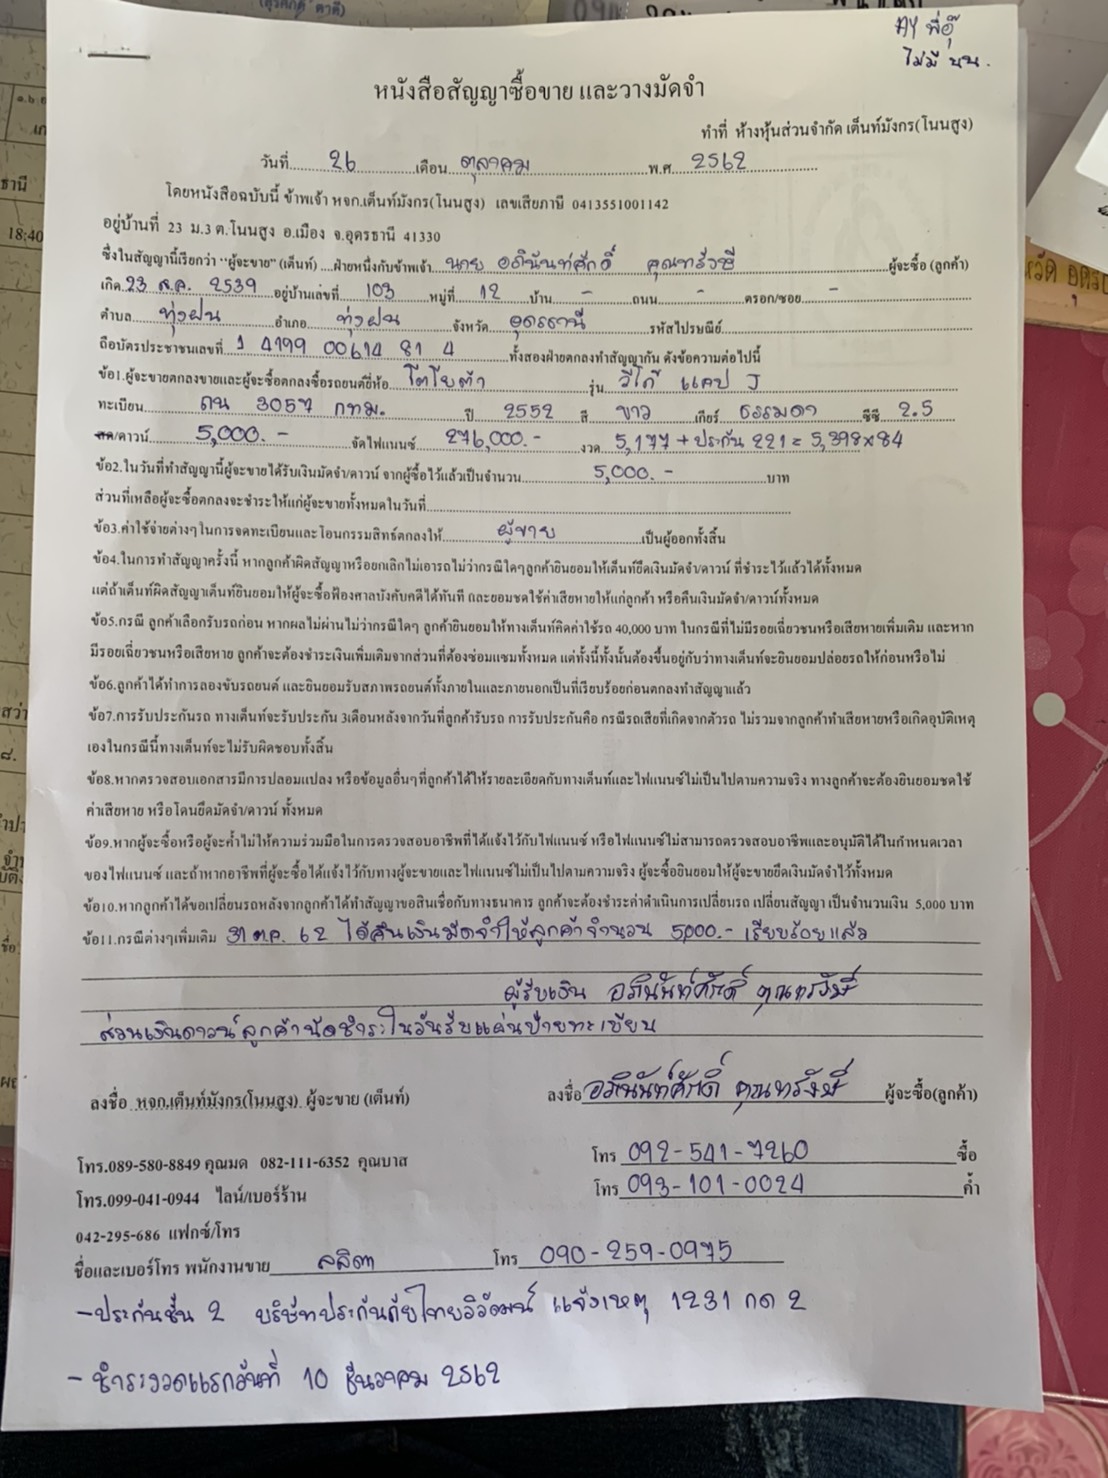 AY พี่อุ๊
ไม่มี นน.
หนังสือสัญญาซื้อขาย และวางมัดจำ
ทำที่ ห้างหุ้นส่วนจำกัด เต็นท์มังกร(โนนสูง)
วันที่ 26 เดือน ตุลาคม พ.ศ 2562
โดยหนังสือฉบับนี้ ข้าพเจ้า หจก.เต็นท์มังกร(โนนสูง) เลขเสียภาษี 0413551001142
อยู่บ้านที่ 23 ม.3 ต.โนนสูง อ.เมือง จ.อุดรธานี 41330
ซึ่งในสัญญานี้เรียกว่า "ผู้จะขาย" (เต็นท์) ....ฝ่ายหนึ่งกับข้าพเจ้า นาย อภินันท์ศักดิ์ คุณทรังษี ผู้จะซื้อ (ลูกค้า)
เกิด 23 ส.ค. 2539 อยู่บ้านเลขที่ 103 หมู่ที่ 12 บ้าน - ถนน - ตรอก/ซอย -
ตำบล ทุ่งฝน อำเภอ ทุ่งฝน จังหวัด อุดรธานี รหัสไปรษณีย์
ถือบัตรประชาชนเลขที่ 1 4199 00614 81 4 ทั้งสองฝ่ายตกลงทำสัญญากัน ดังข้อความต่อไปนี้
ข้อ1.ผู้จะขายตกลงขายและผู้จะซื้อตกลงซื้อรถยนต์ยี่ห้อ โตโยต้า รุ่น วีโก้ แคป J
ทะเบียน ถน 3057 กทม. ปี 2552 สี ขาว เกียร์ ธรรมดา ซีซี 2.5
สด/ดาวน์ 5,000.- จัดไฟแนนซ์ 276,000.- งวด 5,177 + ประกัน 221 = 5,398 x 84
ข้อ2.ในวันที่ทำสัญญานี้ผู้จะขายได้รับเงินมัดจำ/ดาวน์ จากผู้ซื้อไว้แล้วเป็นจำนวน 5,000.- บาท
ส่วนที่เหลือผู้จะซื้อตกลงจะชำระให้แก่ผู้จะขายทั้งหมดในวันที่
ข้อ3.ค่าใช้จ่ายต่างๆในการจดทะเบียนและโอนกรรมสิทธ์ตกลงให้ ผู้ขาย เป็นผู้ออกทั้งสิ้น
ข้อ4.ในการทำสัญญาครั้งนี้ หากลูกค้าผิดสัญญาหรือยกเลิกไม่เอารถไม่ว่ากรณีใดๆลูกค้ายินยอมให้เต็นท์ยึดเงินมัดจำ/ดาวน์ ที่ชำระไว้แล้วได้ทั้งหมด
แต่ถ้าเต็นท์ผิดสัญญาเต็นท์ยินยอมให้ผู้จะซื้อฟ้องศาลบังคับคดีได้ทันที ถละยอมชดใช้ค่าเสียหายให้แก่ลูกค้า หรือคืนเงินมัดจำ/ดาวน์ทั้งหมด
ข้อ5.กรณี ลูกค้าเลือกรับรถก่อน หากผลไม่ผ่านไม่ว่ากรณีใดๆ ลูกค้ายินยอมให้ทางเต็นท์คิดค่าใช้รถ 40,000 บาท ในกรณีที่ไม่มีรอยเฉี่ยวชนหรือเสียหายเพิ่มเติม และหาก
มีรอยเฉี่ยวชนหรือเสียหาย ลูกค้าจะต้องชำระเงินเพิ่มเติมจากส่วนที่ต้องซ่อมแซมทั้งหมด แต่ทั้งนี้ทั้งนั้นต้องขึ้นอยู่กับว่าทางเต็นท์จะยินยอมปล่อยรถให้ก่อนหรือไม่
ข้อ6.ลูกค้าได้ทำการลองขับรถยนต์ และยินยอมรับสภาพรถยนต์ทั้งภายในและภายนอกเป็นที่เรียบร้อยก่อนตกลงทำสัญญาแล้ว
ข้อ7.การรับประกันรถ ทางเต็นท์จะรับประกัน 3เดือนหลังจากวันที่ลูกค้ารับรถ การรับประกันคือ กรณีรถเสียที่เกิดจากตัวรถ ไม่รวมจากลูกค้าทำเสียหายหรือเกิดอุบัติเหตุ
เองในกรณีนี้ทางเต็นท์จะไม่รับผิดชอบทั้งสิ้น
ข้อ8.หากตรวจสอบเอกสารมีการปลอมแปลง หรือข้อมูลอื่นๆที่ลูกค้าได้ให้รายละเอียดกับทางเต็นท์และไฟแนนซ์ไม่เป็นไปตามความจริง ทางลูกค้าจะต้องยินยอมชดใช้
ค่าเสียหาย หรือโดนยึดมัดจำ/ดาวน์ ทั้งหมด
ข้อ9.หากผู้จะซื้อหรือผู้จะค้ำไม่ให้ความร่วมมือในการตรวจสอบอาชีพที่ได้แจ้งไว้กับไฟแนนซ์ หรือไฟแนนซ์ไม่สามารถตรวจสอบอาชีพและอนุมัติได้ในกำหนดเวลา
ของไฟแนนซ์ และถ้าหากอาชีพที่ผู้จะซื้อได้แจ้งไว้กับทางผู้จะขายและไฟแนนซ์ไม่เป็นไปตามความจริง ผู้จะซื้อยินยอมให้ผู้จะขายยึดเงินมัดจำไว้ทั้งหมด
ข้อ10.หากลูกค้าได้ขอเปลี่ยนรถหลังจากลูกค้าได้ทำสัญญาขอสินเชื่อกับทางธนาคาร ลูกค้าจะต้องชำระค่าดำเนินการเปลี่ยนรถ เปลี่ยนสัญญา เป็นจำนวนเงิน 5,000 บาท
ข้อ11.กรณีต่างๆเพิ่มเติม 31 ต.ค. 62 ได้คืนเงินมัดจำให้ลูกค้าจำนวน 5,000.- เรียบร้อยแล้ว
ผู้รับเงิน อภินันท์ศักดิ์ คุณทรังษี
ส่วนเงินดาวน์ลูกค้านัดชำระในวันรับแผ่นป้ายทะเบียน
ลงชื่อ หจก.เต็นท์มังกร(โนนสูง) ผู้จะขาย (เต็นท์) ลงชื่อ อภินันท์ศักดิ์ คุณทรังษี ผู้จะซื้อ(ลูกค้า)
โทร.089-580-8849 คุณมด 082-111-6352 คุณบาส โทร 092-541-7260 ซื้อ
โทร.099-041-0944 ไลน์/เบอร์ร้าน โทร 093-101-0024 ค้ำ
042-295-686 แฟกซ์/โทร
ชื่อและเบอร์โทร พนักงานขาย ลลิตา โทร 090-259-0975
- ประกันชั้น 2 บริษัทประกันภัยไทยวิวัฒน์ แจ้งเหตุ 1231 กด 2
- ชำระงวดแรกวันที่ 10 ธันวาคม 2562